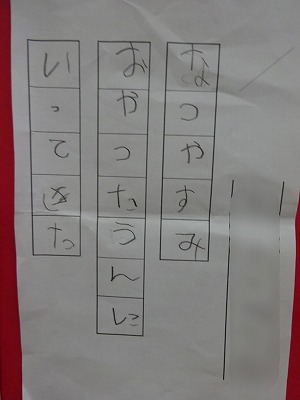 なつやすみ
おやつたうんに
いってきた